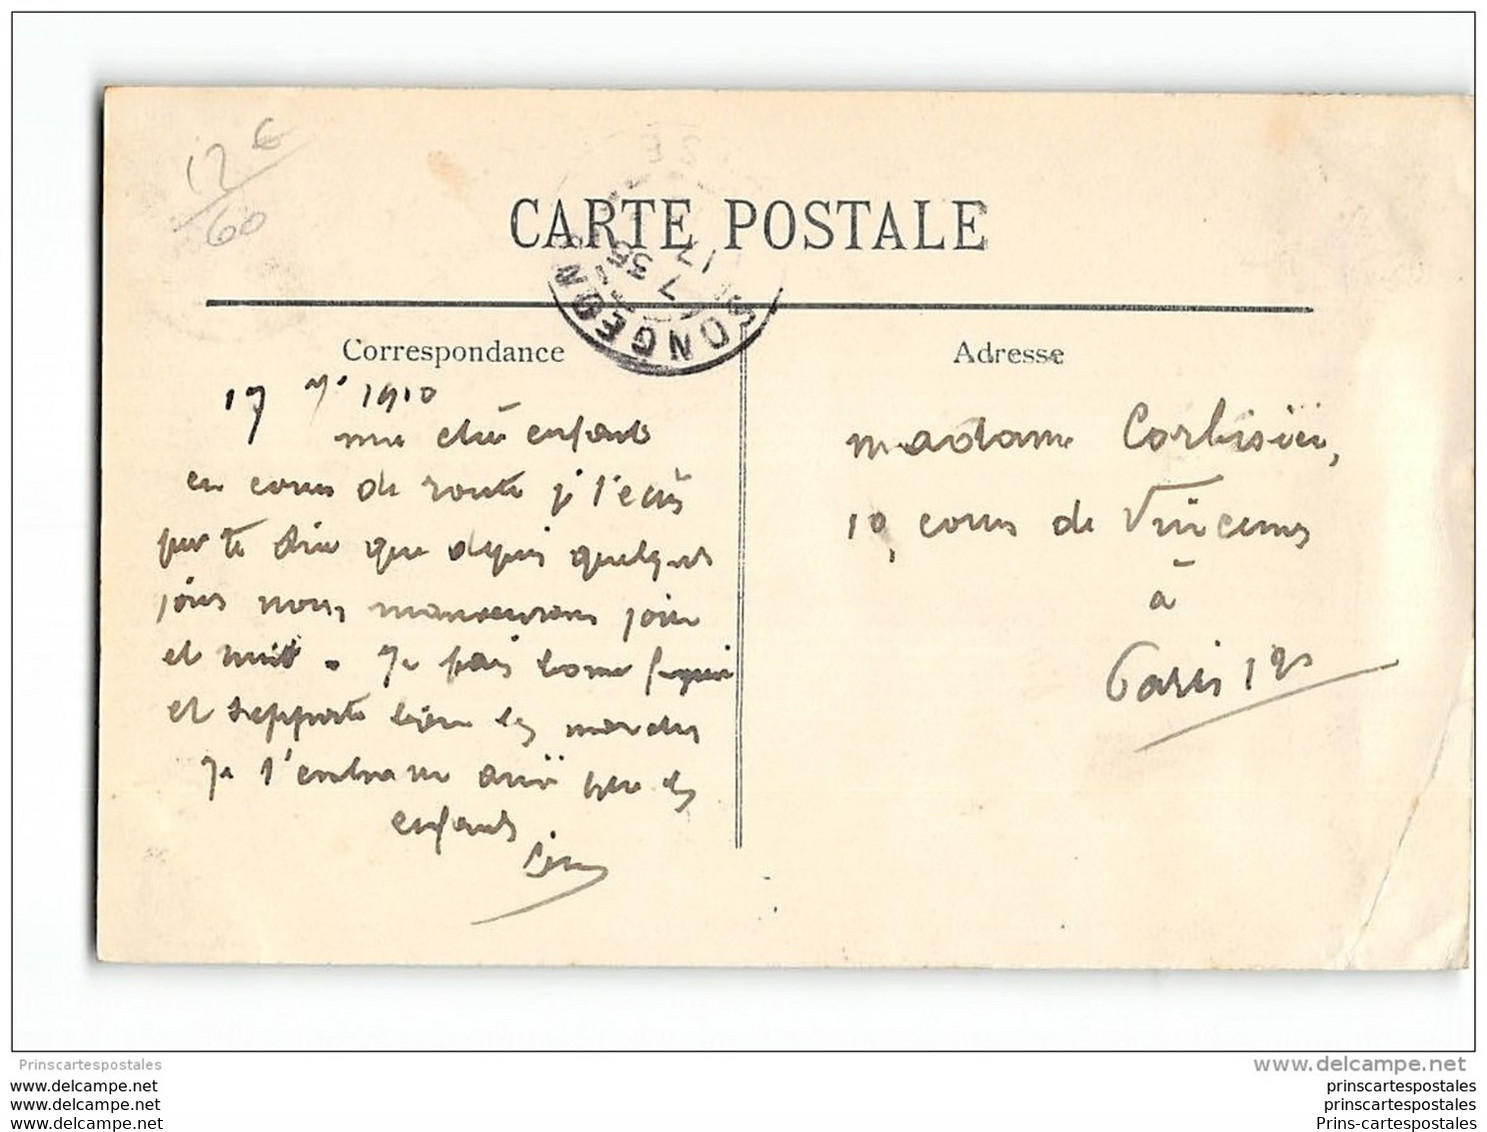 12 €
60
CARTE POSTALE
SONGEONS
7 35
17
Correspondance
Adresse
17 7e 1910
ma chère enfants
en cours de route je t'écris
pour te dire que depuis quelques
jours nous manoeuvrons jour
et nuit. Je suis bonne
et supporte bien les marches
Je t'embrasse ainsi que les
enfants
madame Corbisier,
10, cours de Vincennes
à
Paris
Prinscartespostales
www.delcampe.net
www.delcampe.net
www.delcampe.net
www.delcampe.net
prinscartespostales
prinscartespostales
Prins-cartespostales